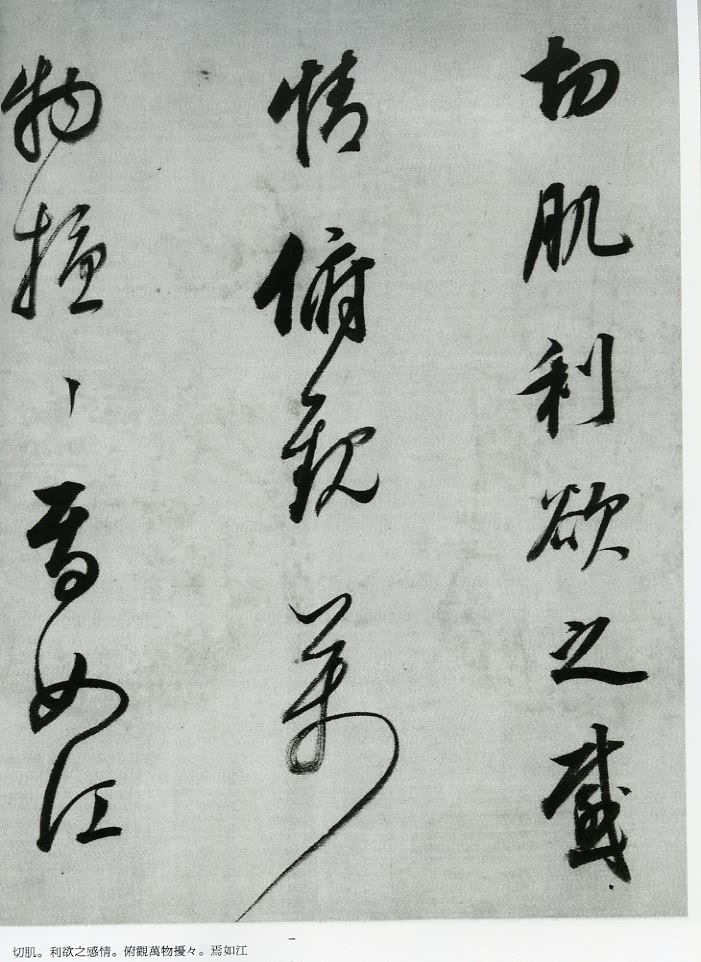 切肌利欲之感
情俯觀萬
物擾々焉如江
切肌。利欲之感情。俯觀萬物擾々。焉如江